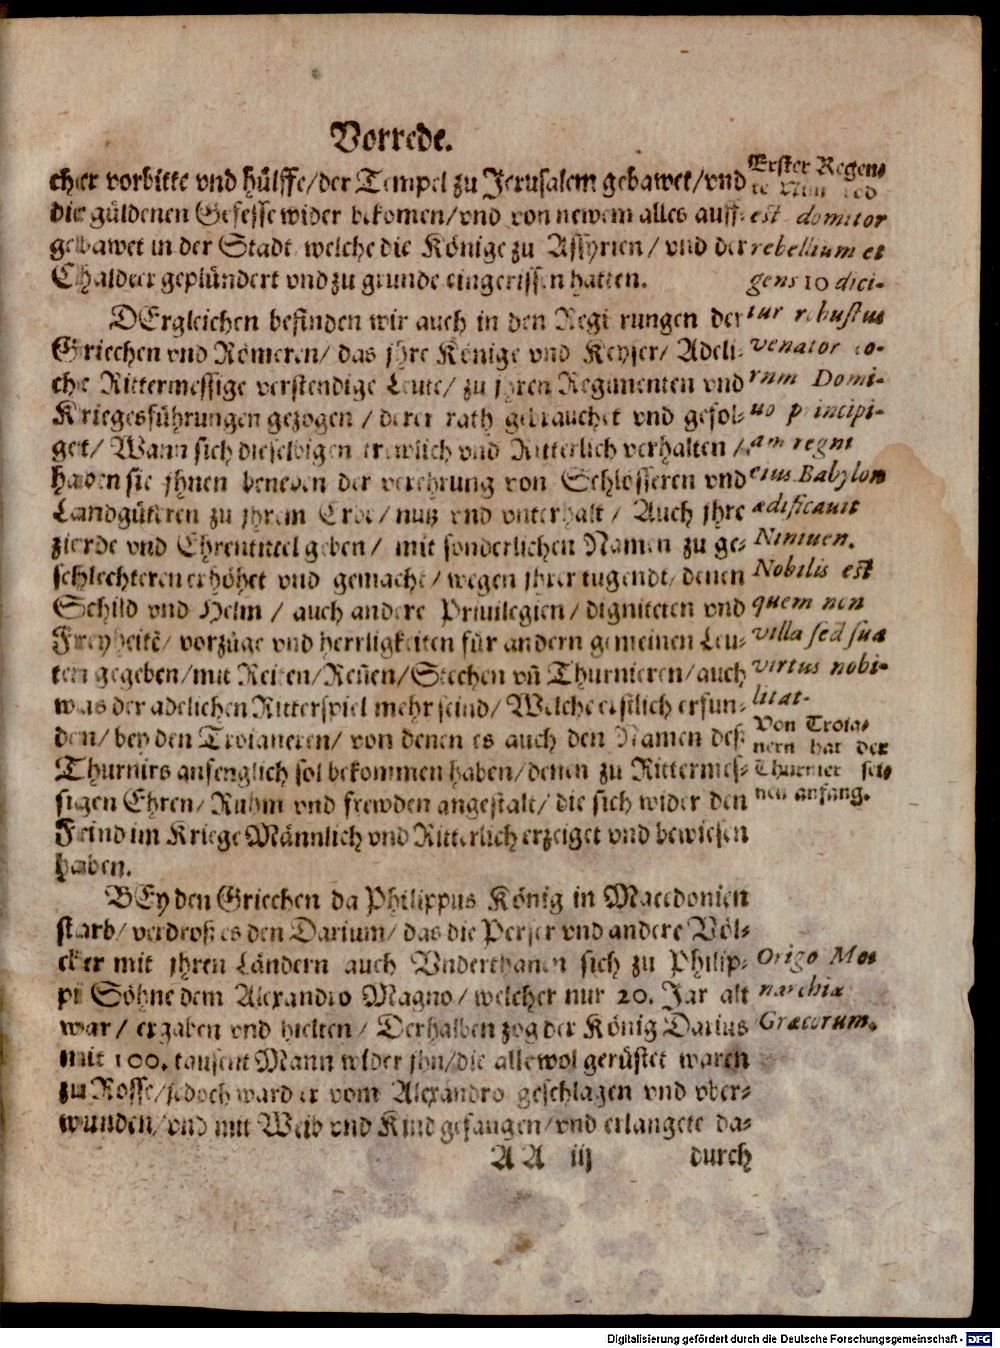 Vorrede.
cher vorbitte vnd hülffe/der Tempel zu Jerusalem gebawet/vnd
die güldenen Gefesse wider bekomen/vnd von newem alles auff-
gebawet in der Stadt welche die Könige zu Assyrien/ vnd der
Chaldeer geplündert vnd zu grunde eingerissen hatten.
DErgleichen befinden wir auch in den Regirungen der
Griechen vnd Römeren/ das jhre Könige vnd Keyser/ Adeli-
che Rittermessige verstendige Leute/ zu jhren Regimenten vnd
Kriegesführungen gezogen / derer rath gebrauchet vnd gefol-
get/ Wann sich dieselbigen trewlich vnd Ritterlich verhalten /
haben sie jhnen beneben der verehrung von Schlösseren vnd
Landgüteren zu jhrem Erbe/ nutz vnd vnterhalt / Auch jhre
zierde vnd Ehrentittel geben/ mit sonderlichen Namen zu ge-
schlechteren erhöhet vnd gemacht/ wegen jhrer tugendt/ denen
Schild vnd Helm / auch andere Priuilegien/ digniteten vnd
Freyheitē/ vorzüge vnd herrligkeiten für andern gemeinen Leu-
ten gegeben/mit Reiten/Reñen/Stechen vñ Thurnieren/auch
was der adelichen Ritterspiel mehr seind/ Welche erstlich erfun-
den/ bey den Troianeren/ von denen es auch den Namen des
Thurnirs anfenglich sol bekommen haben/denen zu Rittermes-
sigen Ehren/ Ruhm vnd frewden angestalt/ die sich wider den
Feind im Kriege Männlich vnd Ritterlich erzeiget vnd bewiesen
haben.
BEy den Griechen da Philippus König in Macedonien
starb/ verdroß es den Darium/ das die Perser vnd andere Völ-
cker mit jhren Ländern auch Vnderthanen sich zu Philip-
pi Söhne dem Alexandro Magno/ welcher nur 20. Jar alt
war/ ergaben vnd hielten/ Derhalben zog der König Darius
mit 100. tausent Mann wider jhn/die alle wol gerüstet waren
zu Rosse/jedoch ward er vom Alexandro geschlagen vnd vber-
wunden/vnd mit Weib vnd Kind gefangen/vnd erlangete da-
AA iij durch
Erster Regen-
est domitor
rebellium et
gens 10 dici-
tur robustus
venator co-
ram Domi-
no principi-
um regni
eius Babylon
ædificauit
Niniuen.
Nobilis est
quem non
villa sed sua
virtus nobi-
litat.
Von Troia-
nern hat der
Thurnier sei-
nen anfang.
Origo Mo-
narchiæ
Græcorum.
Digitalisierung gefördert durch die Deutsche Forschungsgemeinschaft - DFG